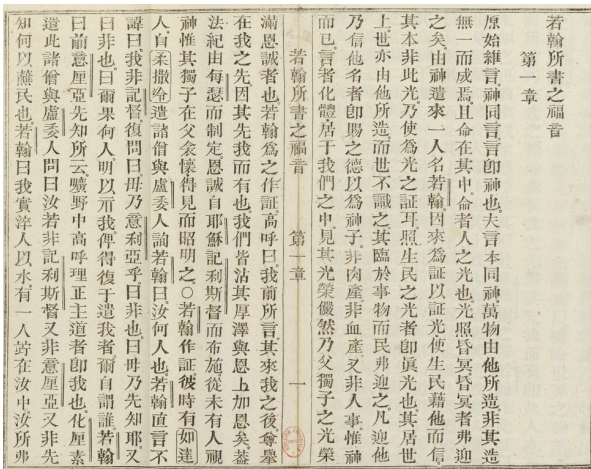 若翰所書之福音
第一章
原始雖言。神同言。言卽神也。夫言本同神。萬物由他所造。非其造
無一而成焉。且命在其中。命者人之光也。光照昏冥。昏冥者弗迎
之矣。由神遣來一人名若翰。因來爲証以証光。使生民藉他而信。
其本非此光。乃使爲光之証耳。照生民之光者卽眞光也。其居世
上。世亦由他所造。而世不識之。其臨於事物而民弗迎之。凡迎他
乃信他名者。卽賜之德以爲神子。非肉產非血產。又非人事。惟神
而已。言者化體居于我們之中。見其光榮儼然乃父獨子之光榮
若翰所書之福音 第一章 一
滿恩誠者也。若翰爲之作証。高呼曰。我前所言其來我之後尊舉
在我之先。因其先我而有也。我們皆沾其厚澤與恩上加恩矣。蓋
法紀由每瑟而制定。恩誠自耶穌記利斯督而布施。從未有人視
神。惟其獨子在父衾懷得見而昭明之。○若翰作証彼時有如達
人自柔撒冷遣諸偺與盧委人諭若翰曰。汝何人也。若翰直言不
諱曰。我非記督。復問曰。毋乃意利亞乎。曰非也。曰。毋乃先知耶。又
曰非也。曰爾果何人。明以示我。俾得復于遣我者。爾自謂誰。若翰
曰。前意厘亞先知所云。曠野中高呼理正主道者卽我也。化厘素
遣此諸偺與盧委人問曰。汝若非記利斯督。又非意厘亞。又非先
知。何以蘸民也。若翰曰。我實淬人以水。有一人苦在汝中。汝所弗